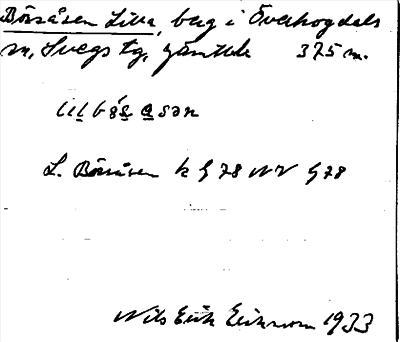 Börsåsen Lilla, berg i Överhogdals
sn, Svegs tg, Jämtl.    375 m.
L. Börsåsen k G 78 NV G78
Nils Erik Eriksson 1933